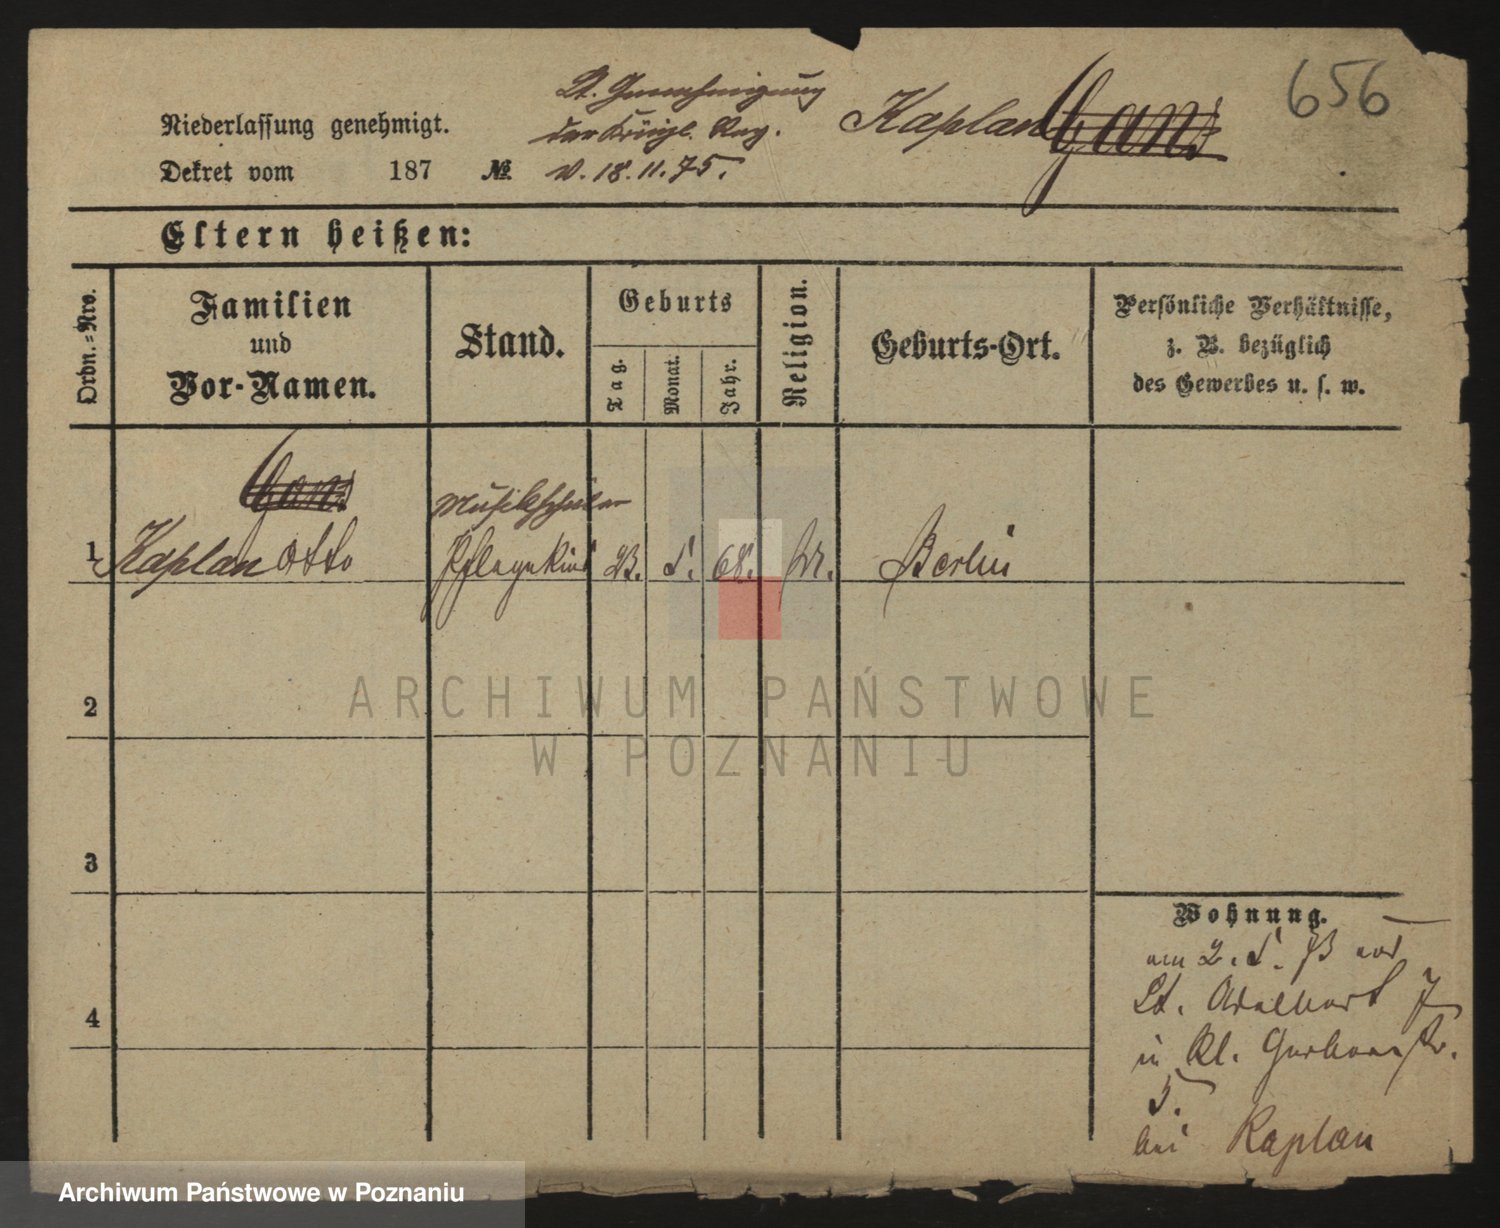 656
Lt. Genehmigung
der Königl. Reg.
v. 18.11.75.
Kaplan Gans
Niederlassung genehmigt.
Dekret vom 187 №
Eltern heißen:
Ordn.=Nro.
Familien
und
Vor-Namen.
Stand.
Geburts
Tag.
Monat.
Jahr.
Religion.
Geburts-Ort.
Persönliche Verhältnisse,
z. B. bezüglich
des Gewerbes u. s. w.
Gans
Musikschüler
1 Kaplan Otto Pflegekind 23. 5. 68. Berlin
2
3
4
Wohnung.
am 2. 5. 73 von
St. Adalbert 7
in Kl. Gerberstr.
5.
bei Kaplan
ARCHIWUM PAŃSTWOWE
W POZNANIU
Archiwum Państwowe w Poznaniu